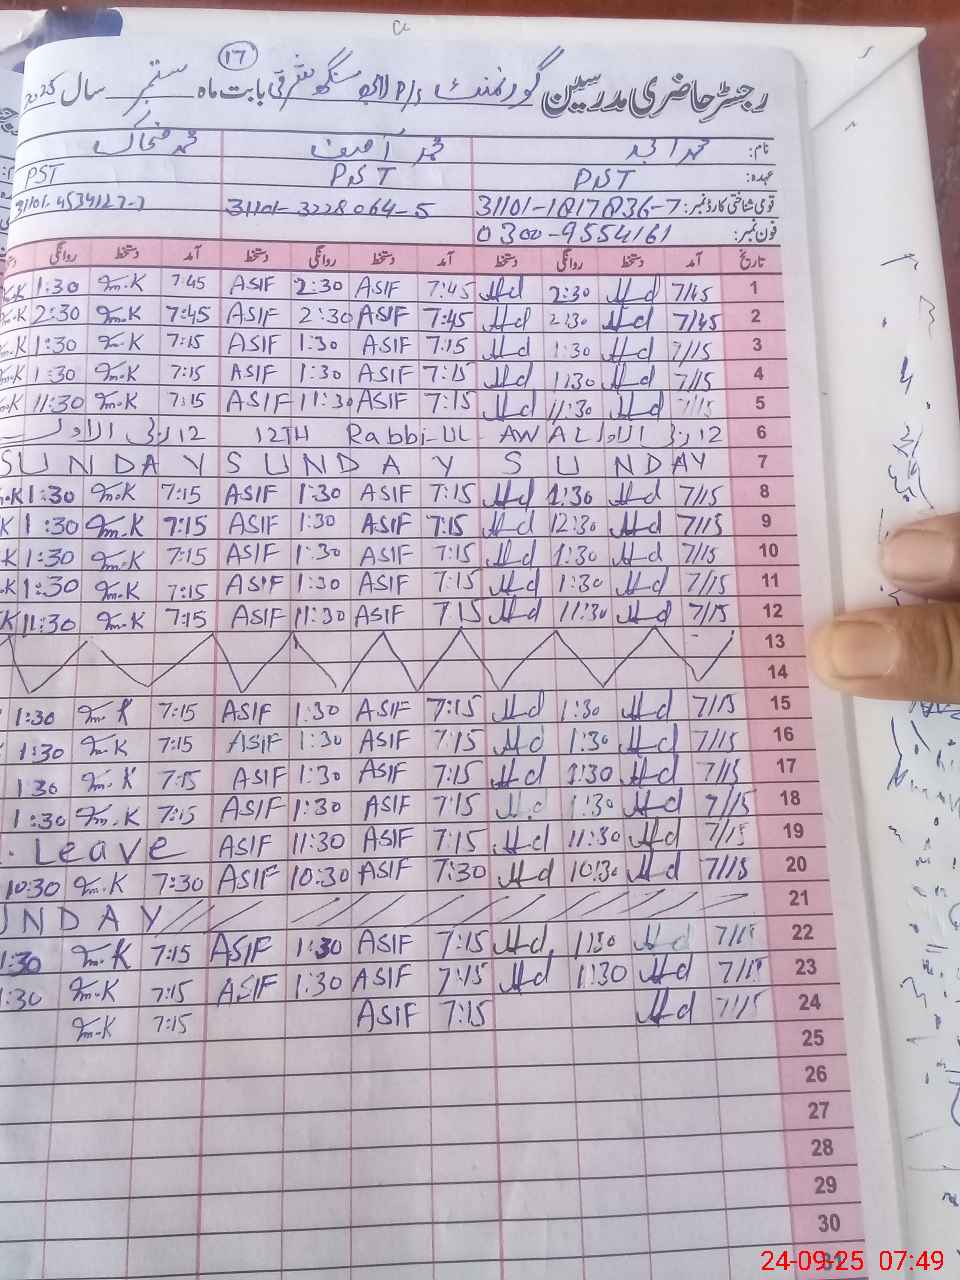 ۱۷
رجسٹر حاضری مدرسین گورنمنٹ P/S سنگھو شرقی بابت ماہ ستمبر سال 2025
نام: محمد امجد محمد آصف محمد ضحاک
عہدہ: PST PST PST
قومی شناختی کارڈ نمبر: 31101-1817836-7 31101-3228064-5 31101-4534127-7
فون نمبر: 0300-9554161
تاریخ آمد دستخط روانگی دستخط آمد دستخط روانگی دستخط آمد دستخط روانگی
1:30 m.K 7:45 ASIF 2:30 ASIF 7:45 2:30 7/45 1
2:30 m.K 7:45 ASIF 2:30 ASIF 7:45 2:30 7/45 2
1:30 m.K 7:15 ASIF 1:30 ASIF 7:15 1:30 7/15 3
1:30 m.K 7:15 ASIF 1:30 ASIF 7:15 1:30 7/15 4
11:30 m.K 7:15 ASIF 11:30 ASIF 7:15 11:30 7/15 5
12 ربیع الاول 12TH Rabbi-UL-AWAL 12 ربیع الاول 6
SUNDAY SUNDAY SUNDAY 7
1:30 m.K 7:15 ASIF 1:30 ASIF 7:15 1:30 7/15 8
1:30 m.K 7:15 ASIF 1:30 ASIF 7:15 12:30 7/15 9
1:30 m.K 7:15 ASIF 1:30 ASIF 7:15 1:30 7/15 10
1:30 m.K 7:15 ASIF 1:30 ASIF 7:15 1:30 7/15 11
11:30 m.K 7:15 ASIF 11:30 ASIF 7:15 11:30 7/15 12
13
14
1:30 m.K 7:15 ASIF 1:30 ASIF 7:15 1:30 7/15 15
1:30 m.K 7:15 ASIF 1:30 ASIF 7:15 1:30 7/15 16
1:30 m.K 7:15 ASIF 1:30 ASIF 7:15 1:30 7/15 17
1:30 m.K 7:15 ASIF 1:30 ASIF 7:15 1:30 7/15 18
Leave ASIF 11:30 ASIF 7:15 11:30 7/15 19
10:30 m.K 7:30 ASIF 10:30 ASIF 7:30 10:30 7/15 20
UNDAY 21
1:30 m.K 7:15 ASIF 1:30 ASIF 7:15 1:30 7/15 22
1:30 m.K 7:15 ASIF 1:30 ASIF 7:15 1:30 7/15 23
m.K 7:15 ASIF 7:15 7/15 24
25
26
27
28
29
30
31
24-09-25 07:49